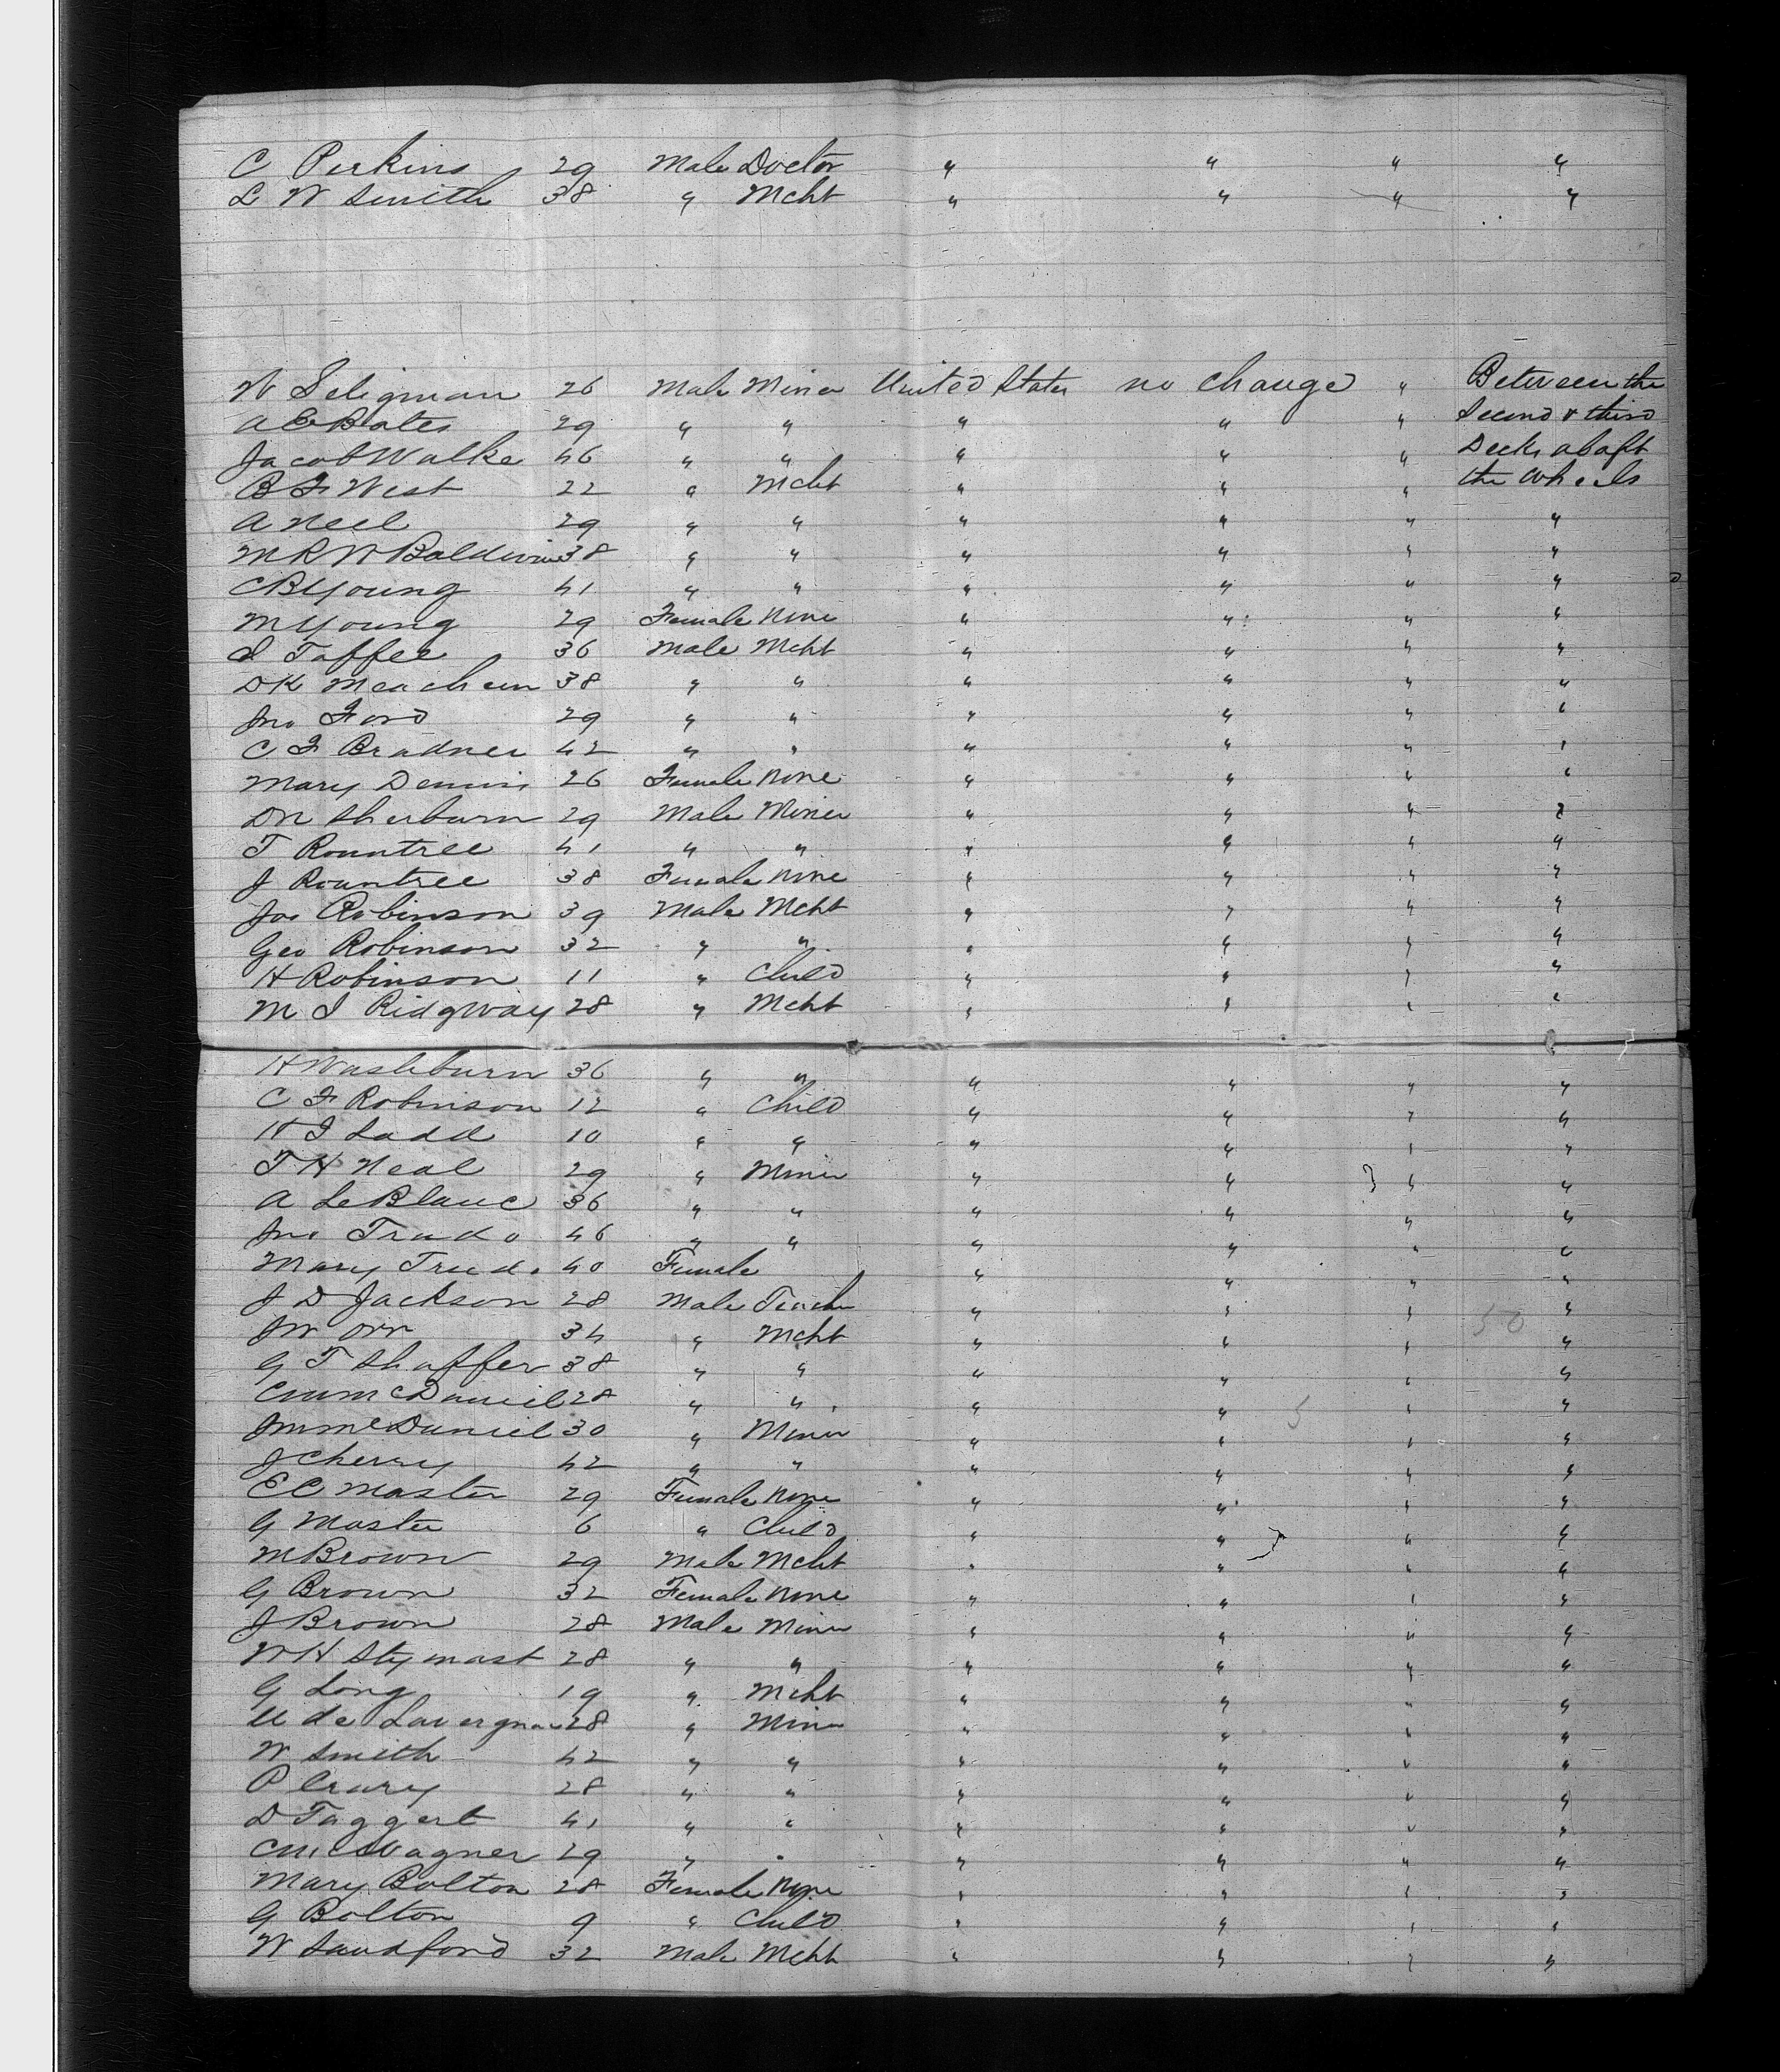 C Perkins 29 Male Doctor " " " "
L W Smith 38 " Mcht " " " "
W Seligman 26 Male Miner United States no change " Between the
A C Bates 29 " " " " " Second & third
Jacob Walke 46 " " " " " Decks abaft
B F West 22 " Mcht " " " the Wheels
A Neel 29 " " " " " "
M R W Baldwin 38 " " " " " "
C B Young 41 " " " " " "
M Young 29 Female None " " " "
I Taffee 36 Male Mcht " " " "
D K Meachem 38 " " " " " "
Jno Ford 29 " " " " " "
C F Bradner 42 " " " " " "
Mary Dennis 26 Female None " " " "
D N Sherburn 29 Male Miner " " " "
T Rountree 41 " " " " " "
J Rountree 38 Female None " " " "
Jos Robinson 39 Male Mcht " " " "
Geo Robinson 32 " " " " " "
H Robinson 11 " Child " " " "
M J Ridgway 28 " Mcht " " " "
H Washburn 36 " " " " " "
C F Robinson 12 " Child " " " "
H I Ladd 10 " " " " " "
T H Neal 29 " Miner " " " "
A LeBlanc 36 " " " " " "
Jno Trudo 46 " " " " " "
Mary Trudo 40 Female " " " "
J D Jackson 28 Male Teacher " " " "
J W Orr 34 " Mcht " " " "
G T Shaffer 38 " " " " " "
C W McDaniel 28 " " " " " "
J M McDaniel 30 " Miner " " " "
J Cherry 42 " " " " " "
E C Master 29 Female None " " " "
G Master 6 " Child " " " "
M Brown 29 Male Mcht " " " "
G Brown 32 Female None " " " "
J Brown 28 Male Miner " " " "
W H Stymast 28 " " " " " "
G Long 19 " Mcht " " " "
de Lavergne 28 " Miner " " " "
W Smith 42 " " " " " "
P Crary 28 " " " " " "
D Taggert 41 " " " " " "
Wagner 29 " " " " " "
Mary Bolton 28 Female None " " " "
G Bolton 9 " Child " " " "
W Sandford 32 Male Mcht " " " "